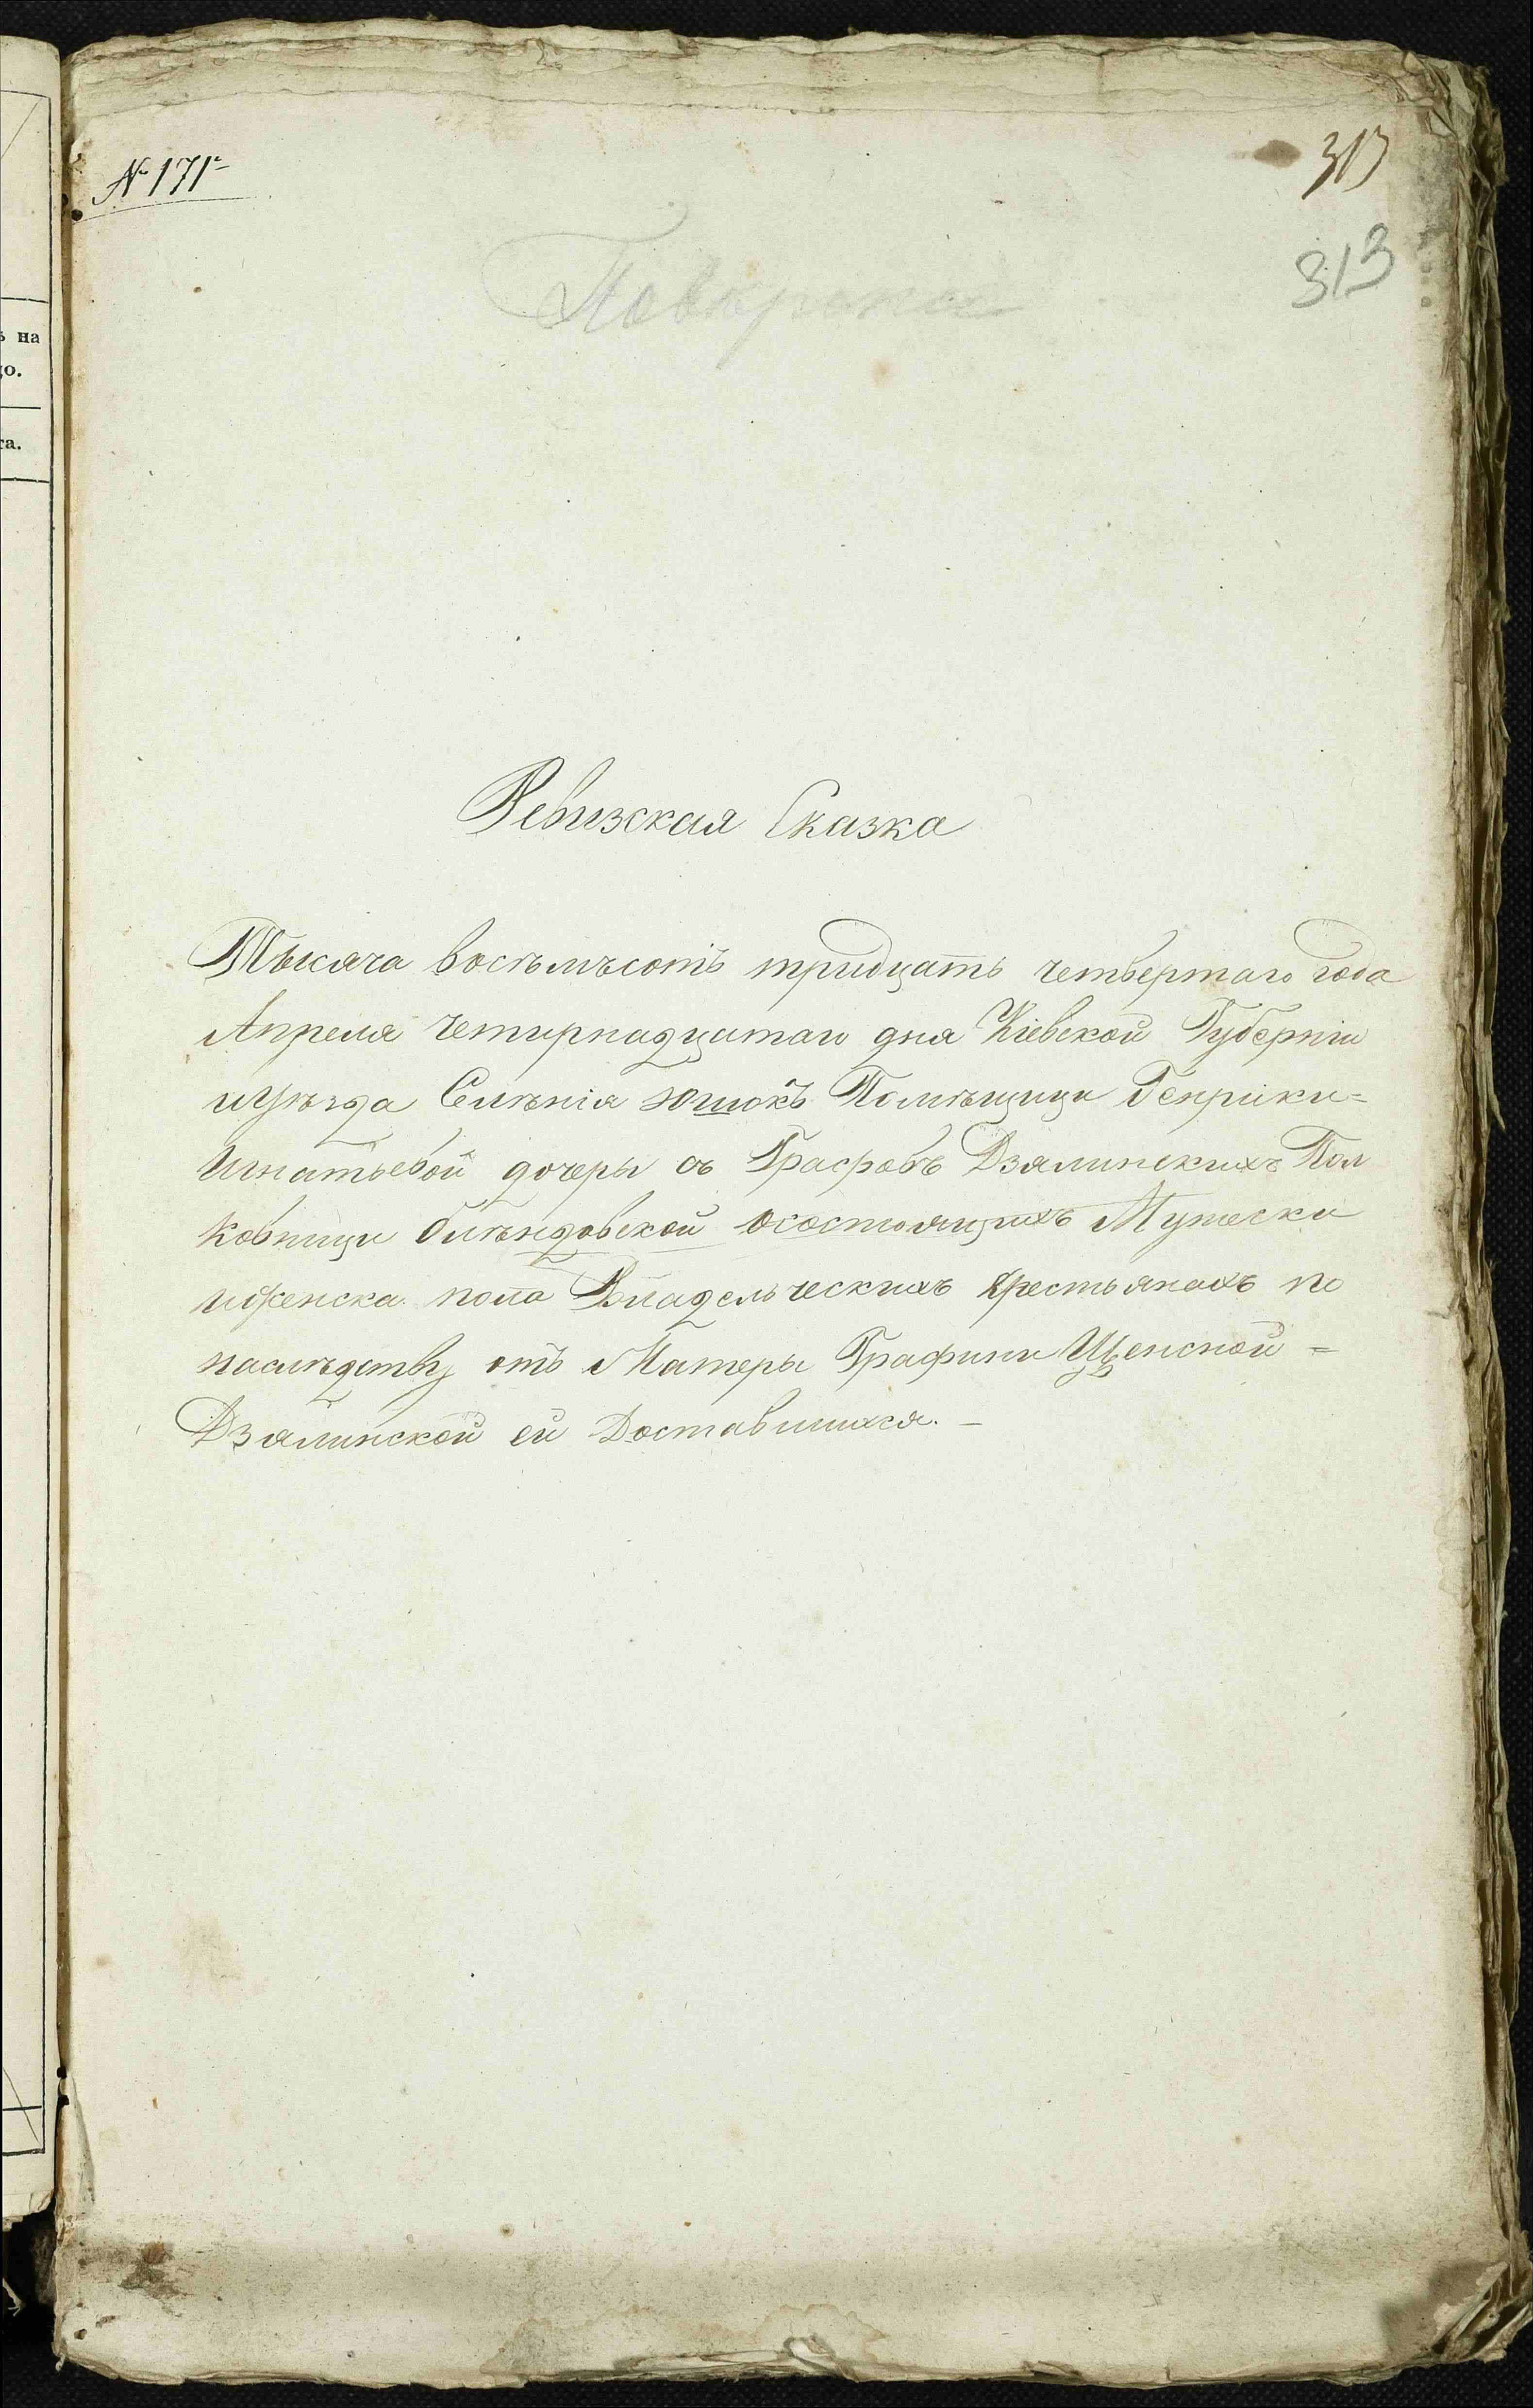 № 171й
313
313
Ревизская Сказка
Тысяча восѣмъсотъ тридцать четвертаго года
Апреля четырнадцатаго дня Кіевской Губерніи
иуѣзда Силѣнія Юшокъ Помѣщици Генріки=
Игнатьевой дочеры съ Графовъ Дзялинскихъ Пол
ковници Олѣндовской осостоящихъ Мужеска
иженска пола Владельческихъ крестьянахъ по
наслѣдству отъ Матеры Графини Щенсной =
Дзялинской ей Доставшихся. —
ъ на
го.
та.